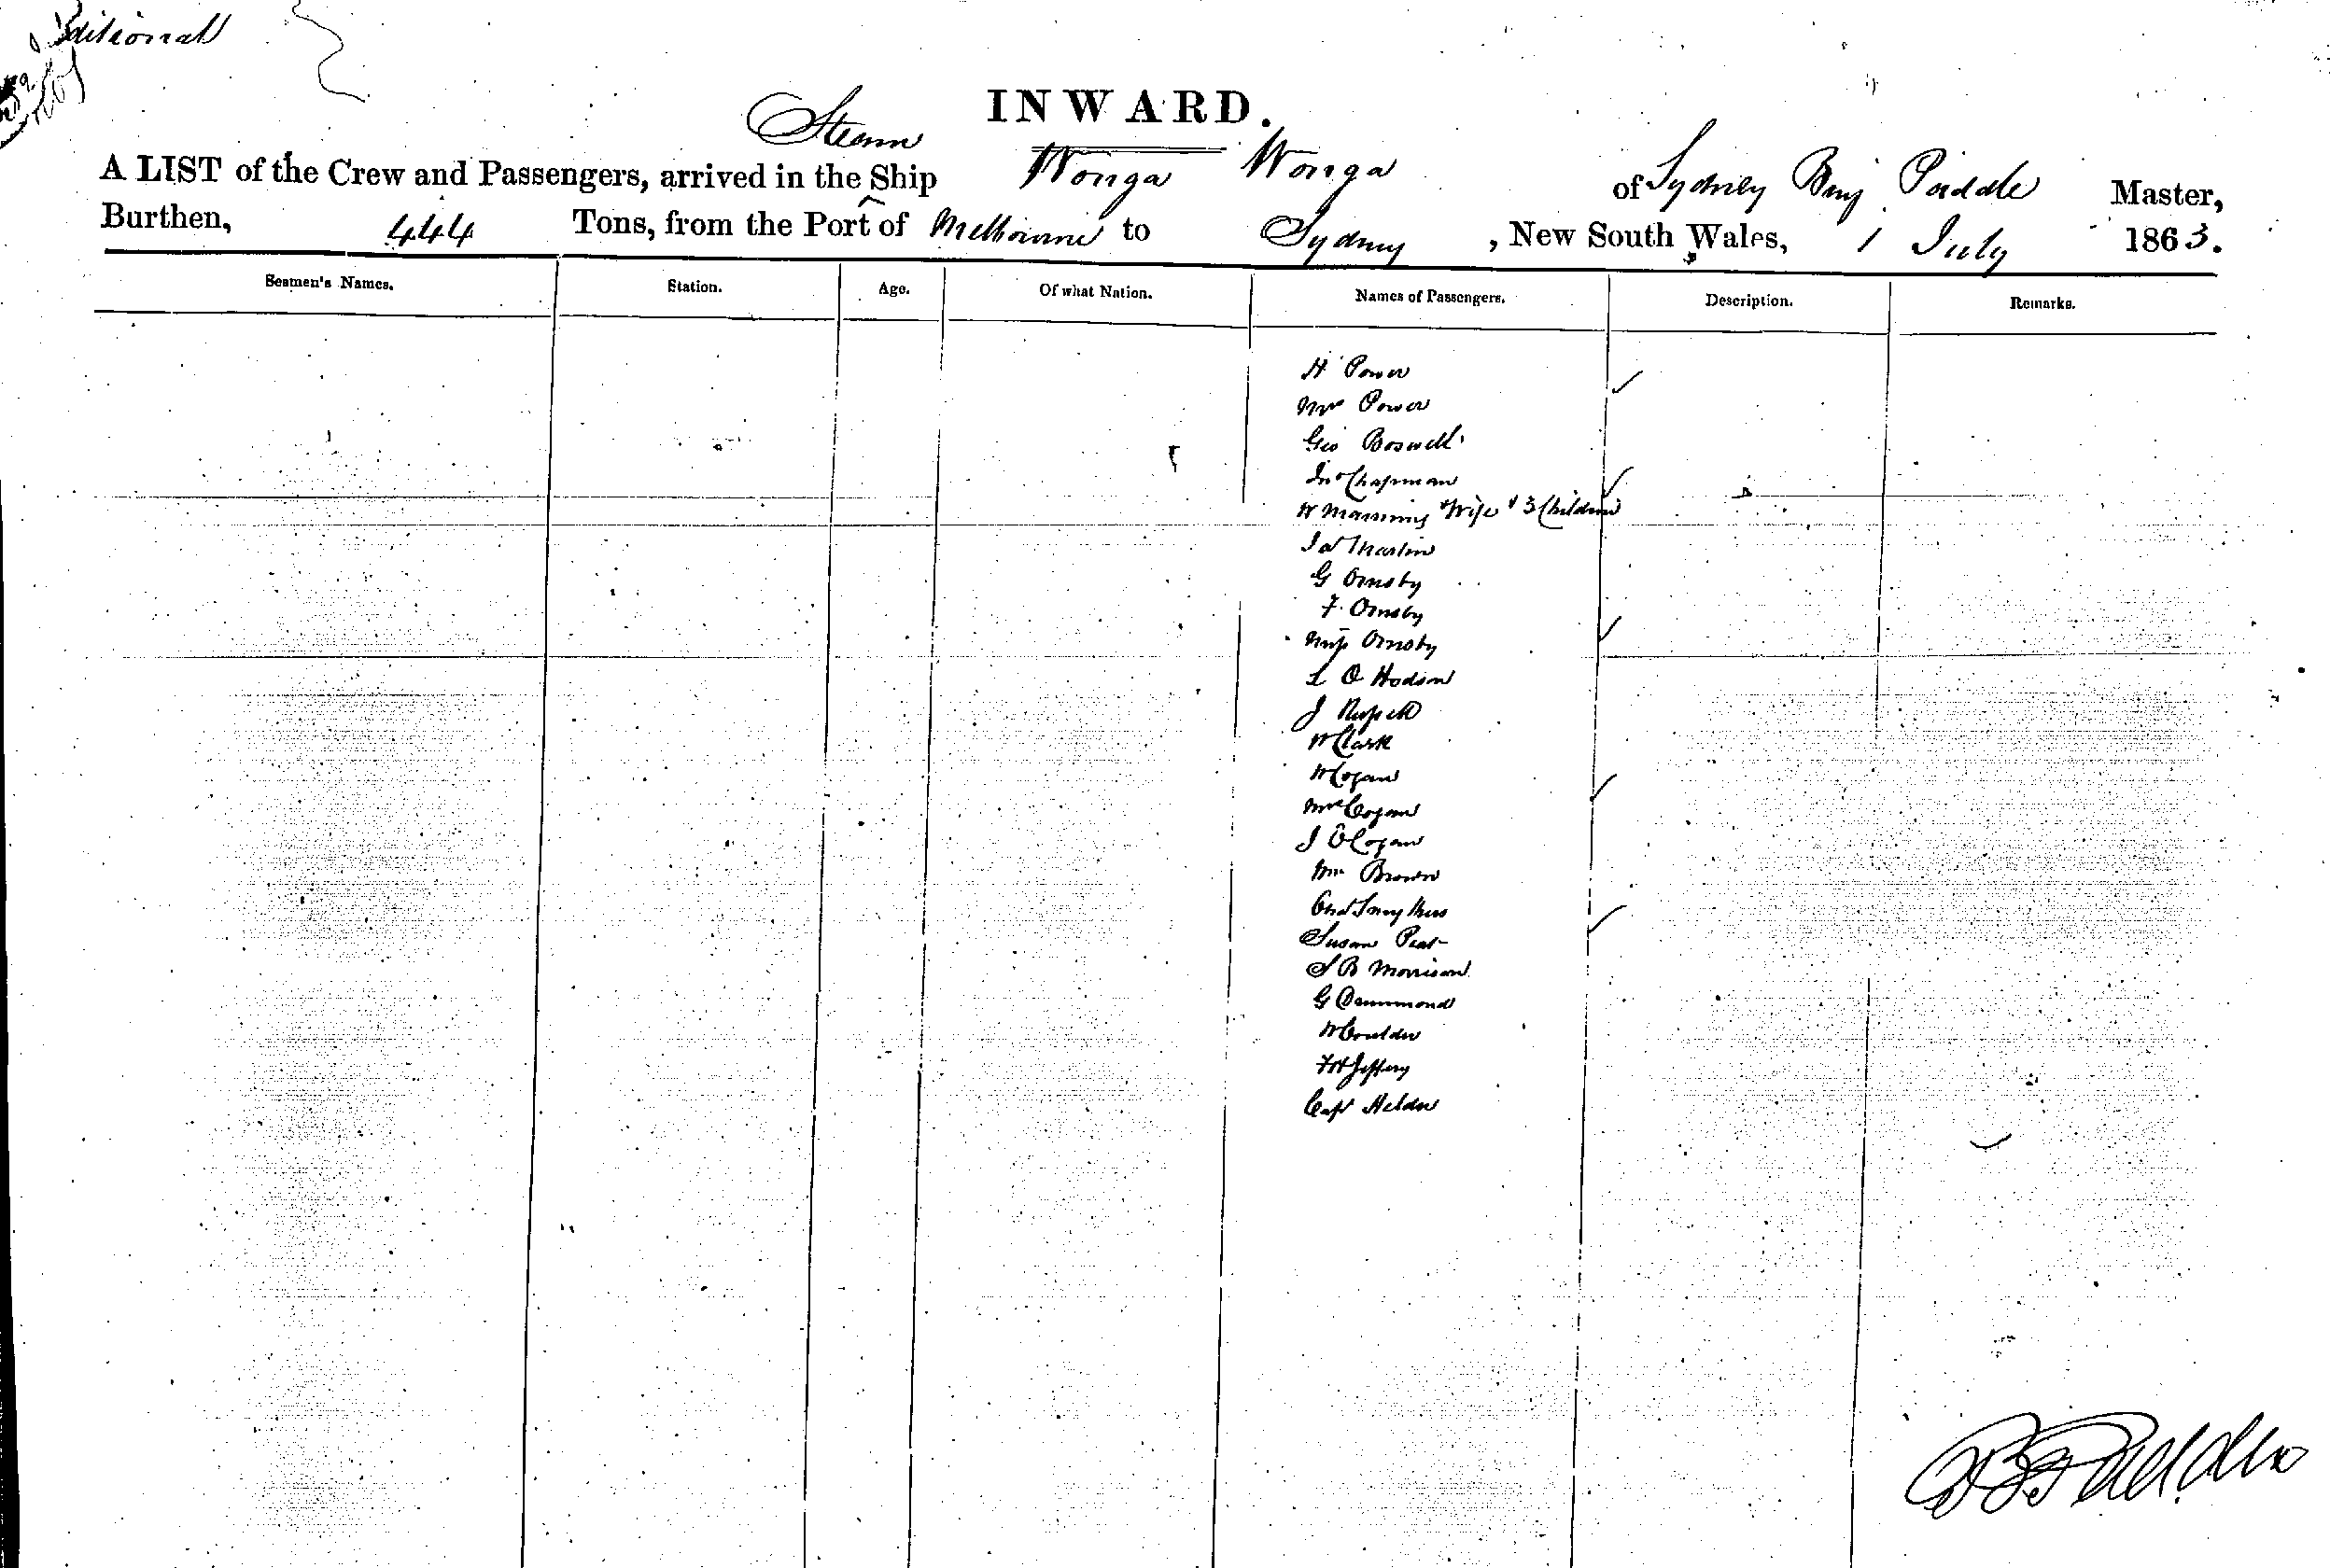 INWARD.
A LIST of the Crew and Passengers, arrived in the Steam Ship Wonga Wonga of Sydney Benj Paddle Master,
Burthen, 444 Tons, from the Port of Melbourne to Sydney, New South Wales, 1 July 1863.
Seamen's Names. Station. Age. Of what Nation. Names of Passengers. Description. Remarks.
H Power
Mrs Power
Geo Boswell
Jno Chapman
W Manning Wife & 3 Children
Jas Martin
G Ormsby
F. Ormsby
Miss Ormsby
L O Hodson
J Russell
W Clark
W Cogan
Mrs Cogan
J O Cogan
Mrs Brown
Smythers
Susan Peat
S B Morrison
G Drummond
W Coulder
F H Jeffery
Capt Helder